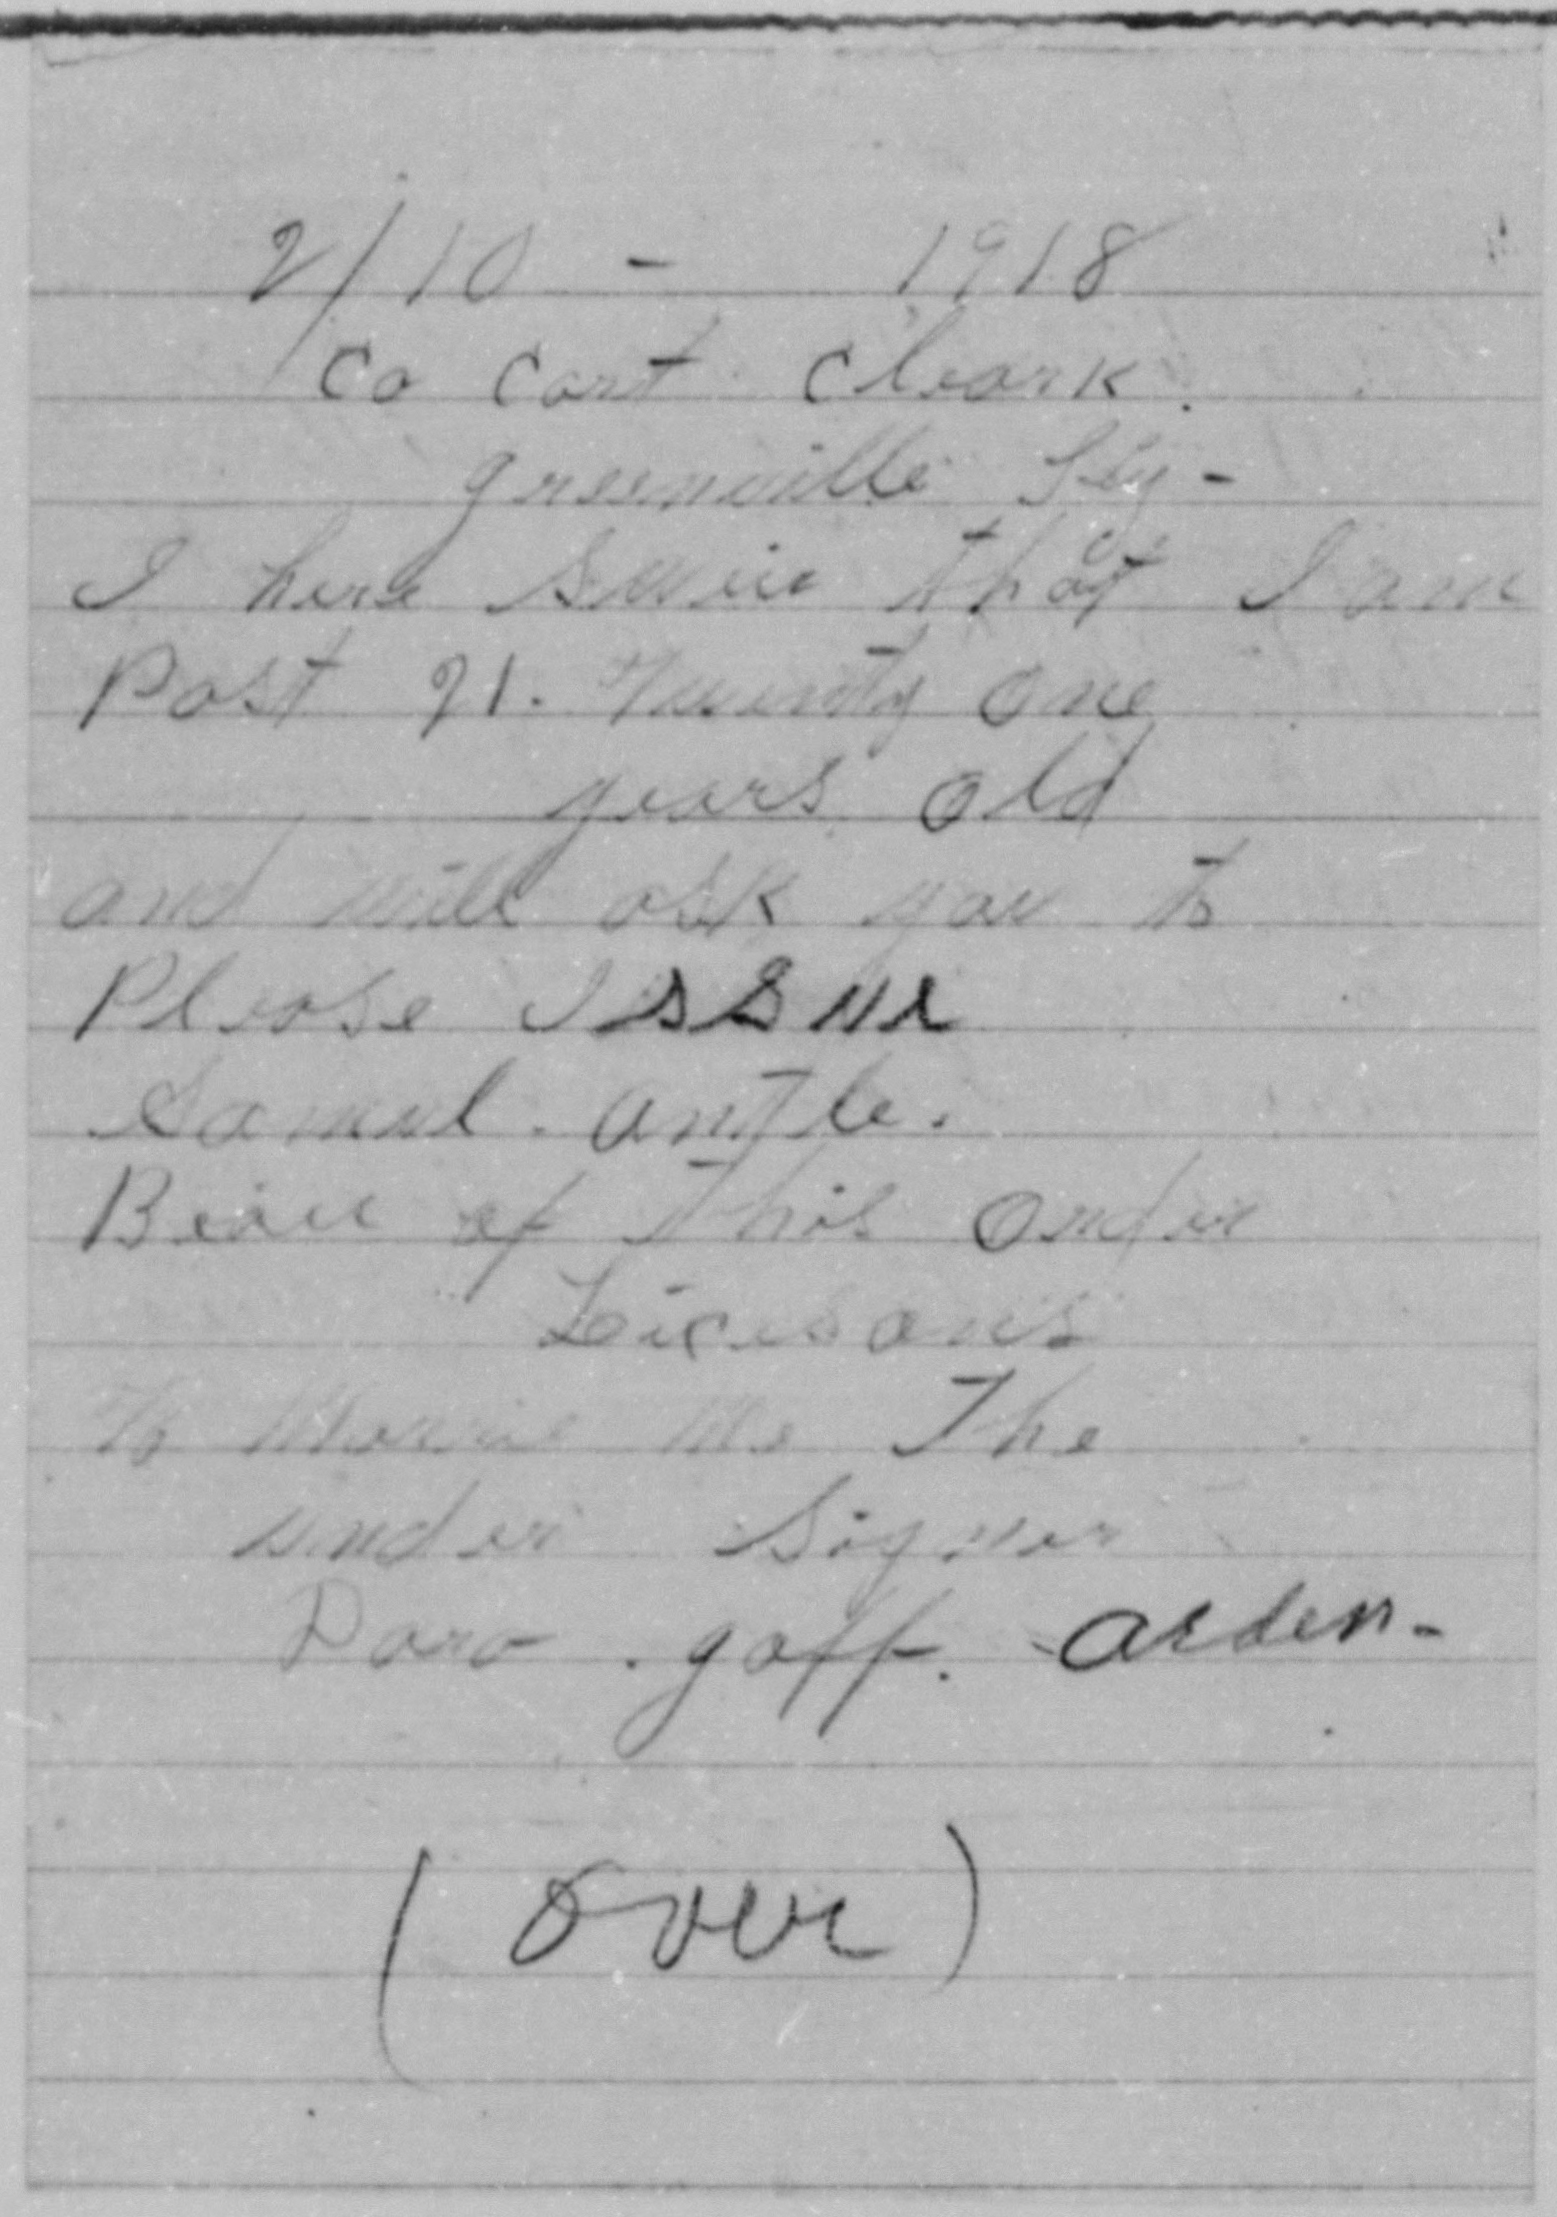 2/10 - 1918
Co Cort Cleark.
greenville Ky-
I here Sweir that I am
Past 21. Twenty One
years Old
and will ask you to
Please Issue
Samuel. Antle.
Beair of this Order
Leicesons
to Marrie Me The
under Signer
Dara. goff. Arden-
(Over)